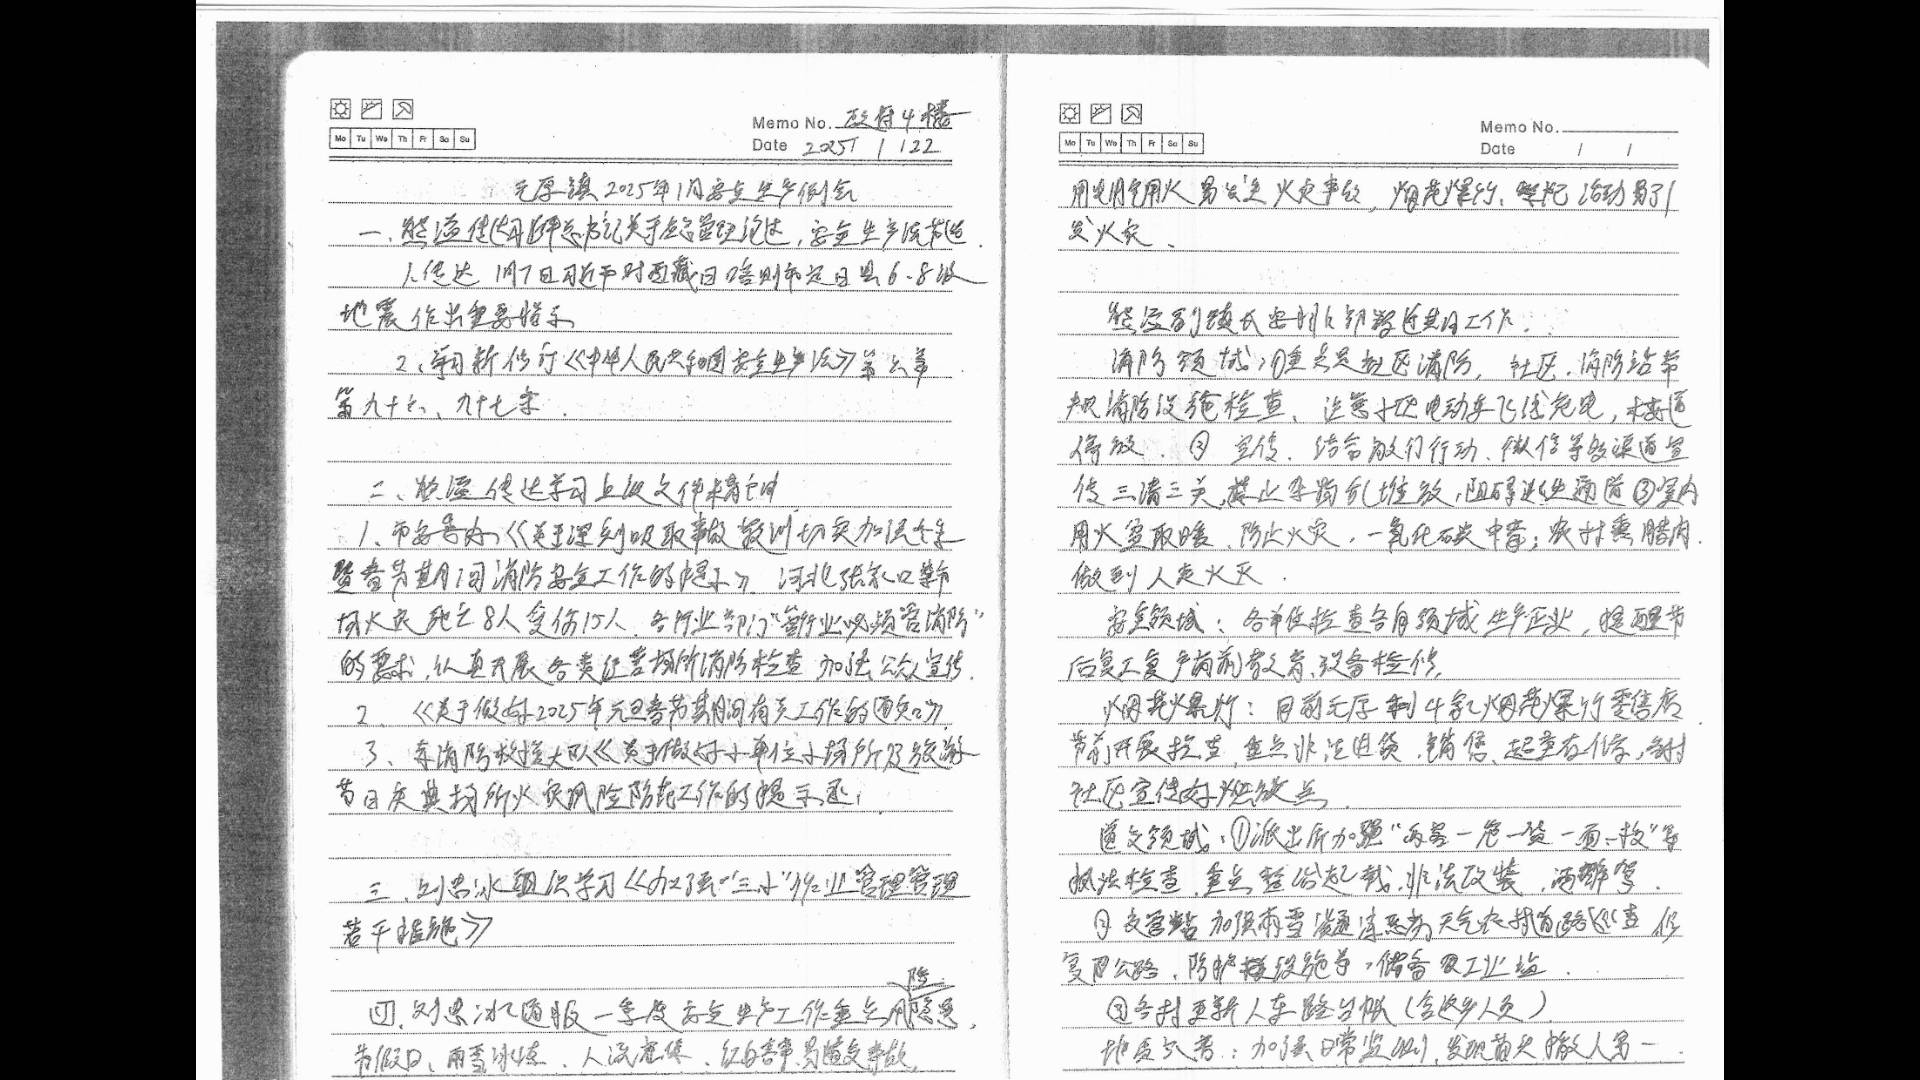 Memo No. 政府4楼
Mo Tu We Th Fr Sa Su
Date 2025 / 1 / 22
元厚镇2025年1月安全生产例会
一、熊溢传达习近平总书记关于应急管理论述,安全生产法节选.
1、传达1月7日习近平对西藏日喀则市定日县6.8级
地震作出重要指示
2、学习新修订《中华人民共和国安全生产法》第六章
第九十六、九十七条.
二、熊溢传达学习上级文件精神
1、市安委办《关于深刻吸取事故教训切实加强冬季
暨春节期间消防安全工作的提示》.河北张家口菜市
场火灾死亡8人受伤15人.各行业部门"管行业必须管消防"
的要求,认真开展各类经营场所消防检查 加强公众宣传.
2、《关于做好2025年元旦春节期间有关工作的通知》
3、市消防救援大队《关于做好小单位小场所及
节日庆典场所火灾风险防范工作的提示函》
三、刘思冰组织学习《加强"三小"作业管理管理
若干措施》
四、刘思冰通报一季度安全生产工作重点隐患,
节假日、雨雪冰冻、人流密集、红白喜事易造交事故,
Memo No.
Mo Tu We Th Fr Sa Su
Date / /
用电用气用火易发生火灾事故,烟花爆竹、祭祀活动易引
发火灾.
熊溢副镇长安排部署近期工作.
消防领域:①重点是社区消防,社区、消防站节
前消防设施检查、注意小区电动车飞线充电,楼道
停放.②宣传.结合敲门行动、微信等多渠道宣
传三清三关,禁止杂物乱堆放,阻碍逃生通道③室内
用火室取暖、防止火灾,一氧化碳中毒;农村熏腊肉.
做到人走火灭.
安全领域:各单位检查各自领域生产企业,提醒节
后复工复产前教育、设备检修.
烟花爆竹:目前元厚剩4家烟花爆竹零售店
节前开展检查,重点非法进货、销售、超量存储,各村
社区宣传好燃放点.
道交领域:①派出所加强"两客一危一货一面一校"等
执法检查,重点整治超载、非法改装、酒醉驾.
②交管站加强雨雪冰冻恶劣天气农村道路巡查,修
复公路、防护设施等,储备工业盐.
③各村更新人车路台帐(含返乡人员)
地质灾害:加强日常监测,发现苗头撤人第一.